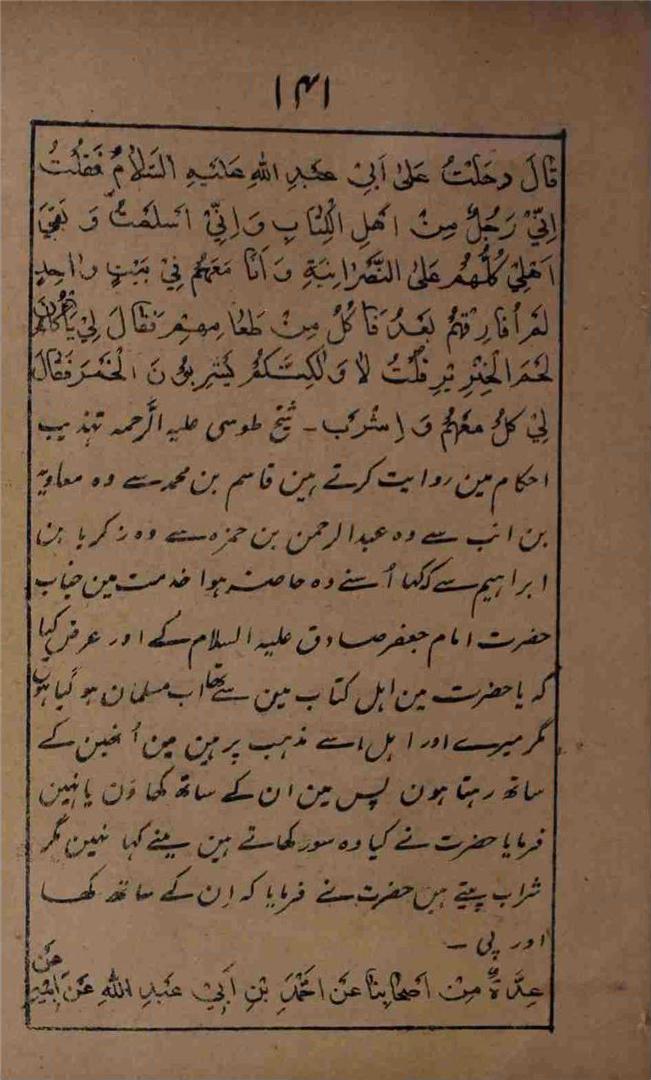 ۱۴۱
قَالَ دَخَلْتُ عَلىٰ اَبِيْ عَبْدِ اللهِ عَلَيْهِ السَّلَامُ فَقُلْتُ
اِنِّيْ رَجُلٌ مِنْ اَهْلِ الْكِتَابِ وَاِنِّيْ اَسْلَمْتُ وَ بَقِيَ
اَهْلِيْ كُلُّهُمْ عَلىٰ النَّصْرَانِيَةِ وَ اَنَا مَعَهُمْ فِيْ بَيْتٍ وَاحِدٍ
لَمْ اُفَارِقْهُمْ بَعْدُ فَاٰكُلُ مِنْ طَعَامِهِمْ فَقَالَ لِيْ يَاْكُلُوْنَ
لَحْمَ الْخِنْزِيْرِ قُلْتُ لَا وَلٰكِنَّهُمْ يَشْرَبُوْنَ الْخَمْرَ فَقَالَ
لِيْ كُلْ مَعَهُمْ وَ اِشْرَبْ ـ شیخ طوسی علیہ الرحمہ تہذیب
احکام مین روایت کرتے ہین قاسم بن محمد سے وہ معاویہ
بن انب سے وہ عبدالرحمن بن حمزہ سے وہ زکریا بن
ابراہیم سے کہ کہا اُسنے وہ حاضر ہوا خدمت مین جناب
حضرت امام جعفر صادق علیہ السلام کے اور عرض کیا
کہ یا حضرت مین اہل کتاب مین سے تھا اب مسلمان ہو گیا ہوں
مگر میرے اور اہل اسے مذہب پر ہین مین اُنھین کے
ساتھ رہتا ہون پس مین ان کے ساتھ کھاؤن یا نہین
فرمایا حضرت نے کیا وہ سور کھاتے ہین مینے کہا نہین مگر
شراب پیتے ہیں حضرت نے فرمایا کہ اِن کے ساتھ کھا
اور پی ـ
عِدَّةٌ مِنْ اَصْحَابِنَا عَنْ اَحْمَدَ بْنِ اَبِيْ عَبْدِ اللهِ عَنْ اَبِيْهِ عَنْ